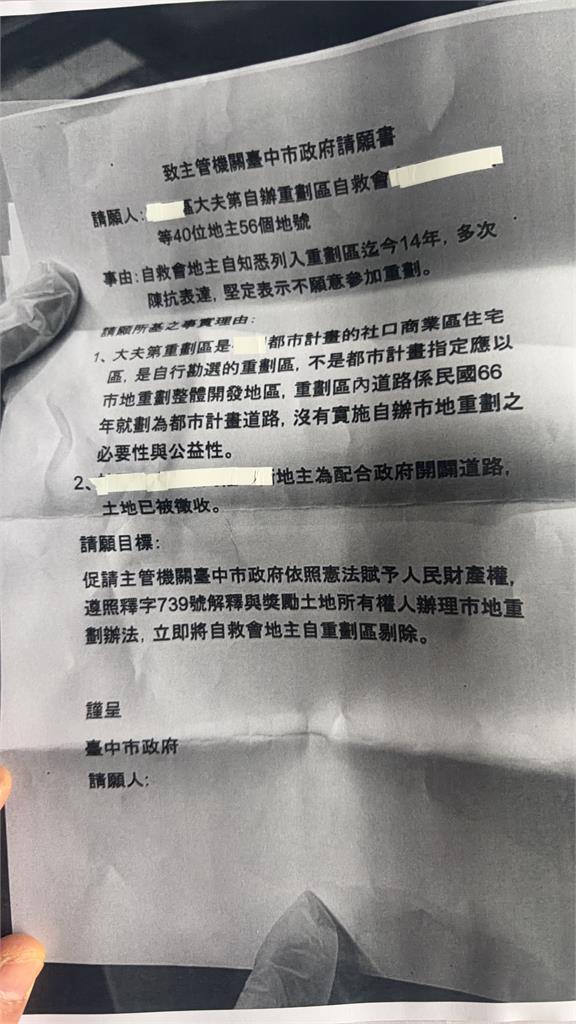 致主管機關臺中市政府請願書
請願人:區大夫第自辦重劃區自救會
等40位地主56個地號
事由:自救會地主自知悉列入重劃區迄今14年，多次
陳抗表達，堅定表示不願意參加重劃。
請願所基之事實理由:
1、大夫第重劃區是都市計畫的社口商業區住宅
區，是自行勘選的重劃區，不是都市計畫指定應以
市地重劃整體開發地區，重劃區內道路係民國66
年就劃為都市計畫道路，沒有實施自辦市地重劃之
必要性與公益性。
2、地主為配合政府開闢道路，
土地已被徵收。
請願目標:
促請主管機關臺中市政府依照憲法賦予人民財產權，
遵照釋字739號解釋與獎勵土地所有權人辦理市地重
劃辦法，立即將自救會地主自重劃區剔除。
謹呈
臺中市政府
請願人: